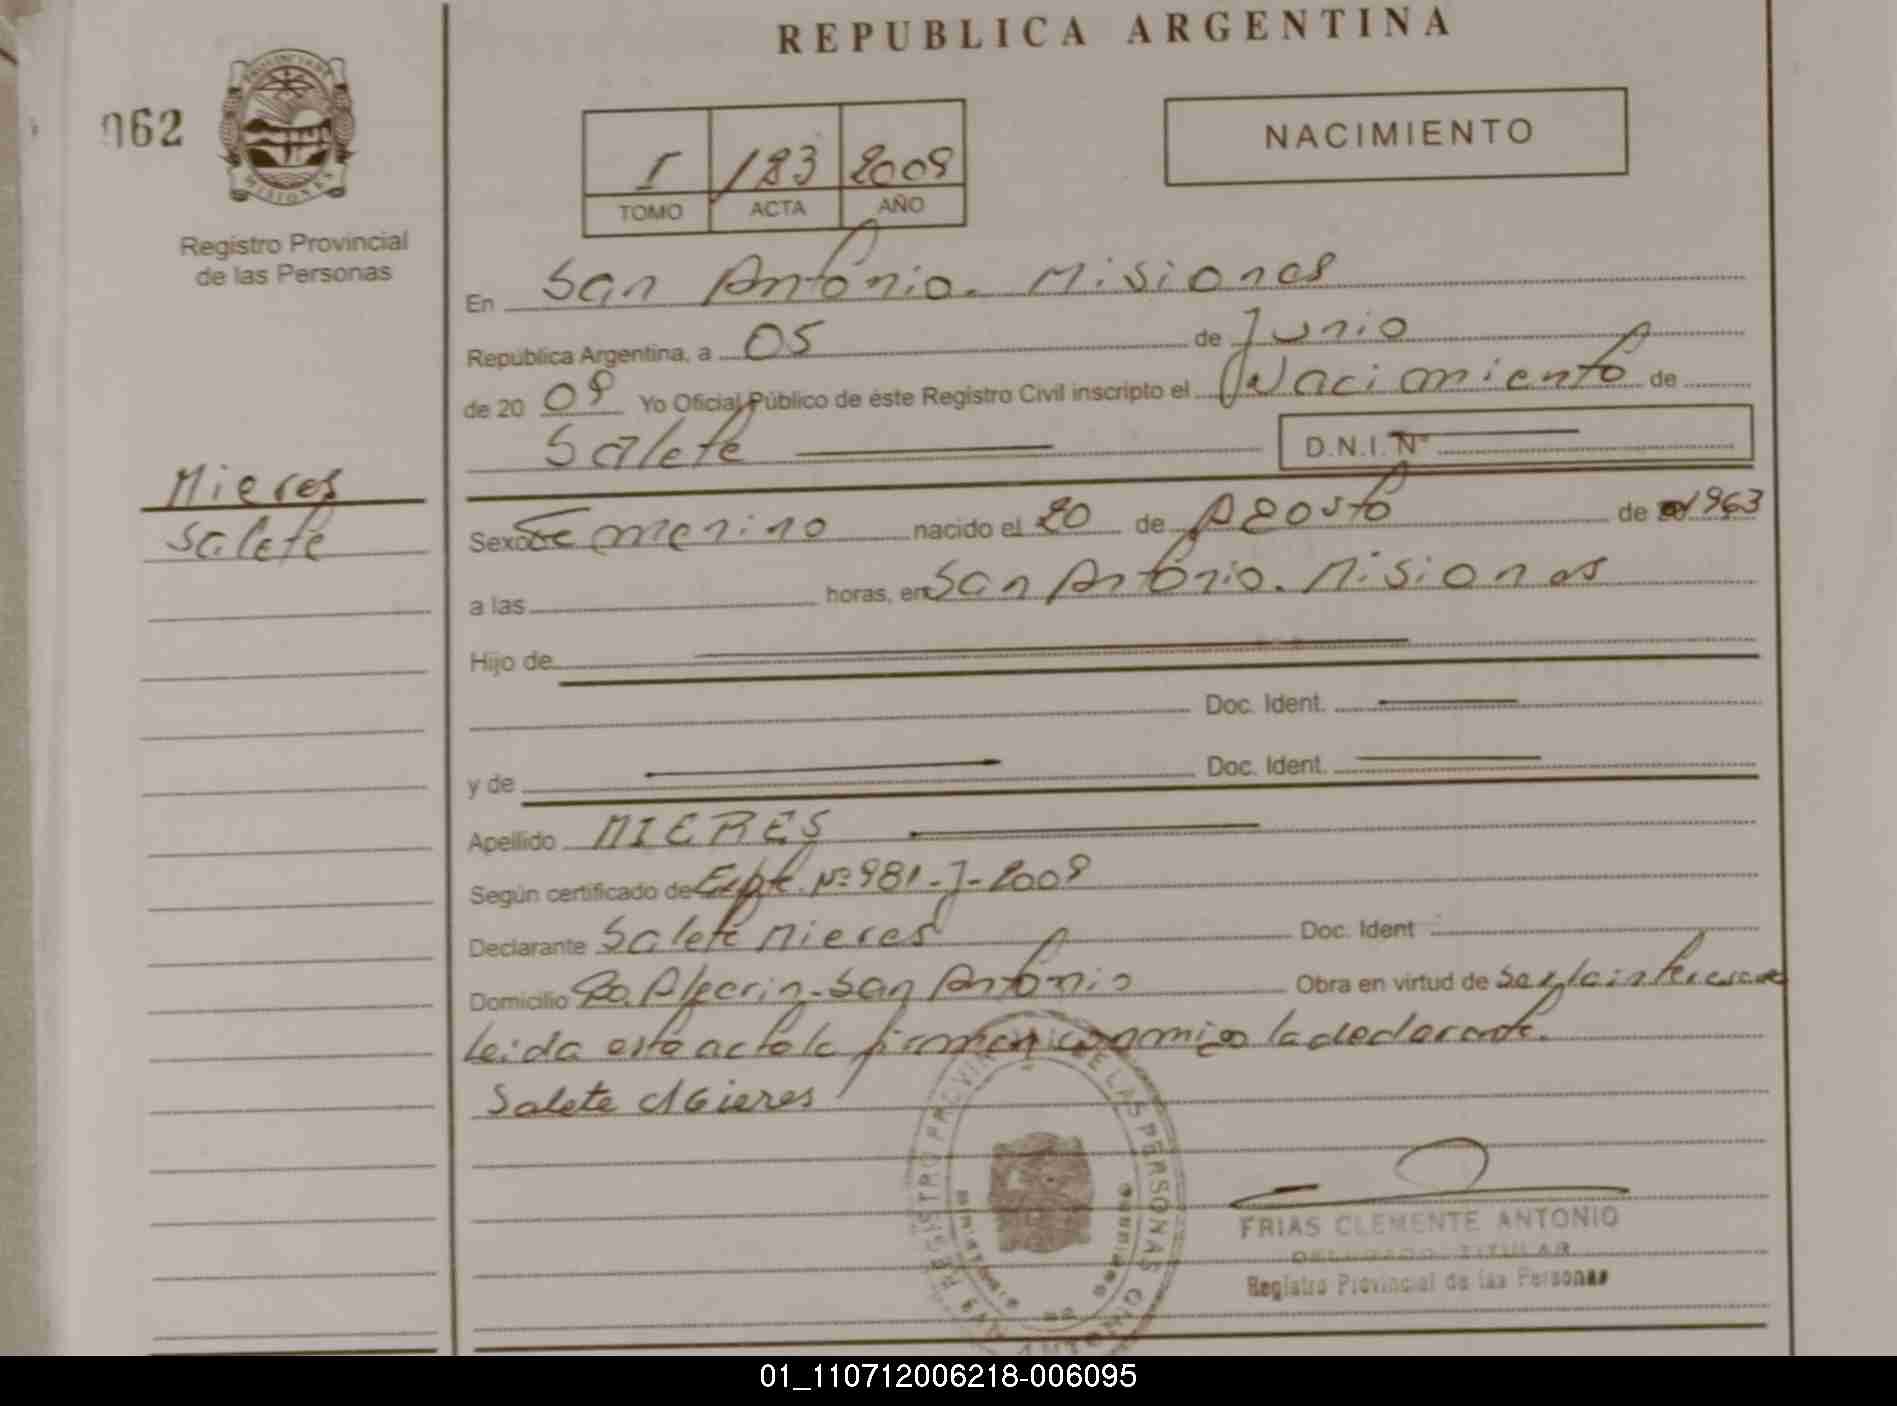 REPUBLICA ARGENTINA
062
PROVINCIA DE
MISIONES
Registro Provincial
de las Personas
I 183 2009
TOMO ACTA AÑO
NACIMIENTO
En San Antonio. Misiones
República Argentina, a 05 de Junio
de 20 09 Yo Oficial Público de éste Registro Civil inscripto el Nacimiento de
Salete D.N.I. Nº
Mieres
Salete
Sexo Femenino nacido el 20 de Agosto de 1963
a las horas, en San Antonio. Misiones
Hijo de
Doc. Ident.
y de Doc. Ident.
Apellido MIERES
Según certificado de Expte. Nº 981-J-2009
Declarante Salete Mieres Doc. Ident
Domicilio San Antonio Obra en virtud de ser la interesada
Leida esta acta la firman conmigo la declarante.
Salete Mieres
REGISTRO PROVINCIAL DE LAS PERSONAS
FRIAS CLEMENTE ANTONIO
DELEGADO TITULAR
Registro Provincial de las Personas
01_110712006218-006095